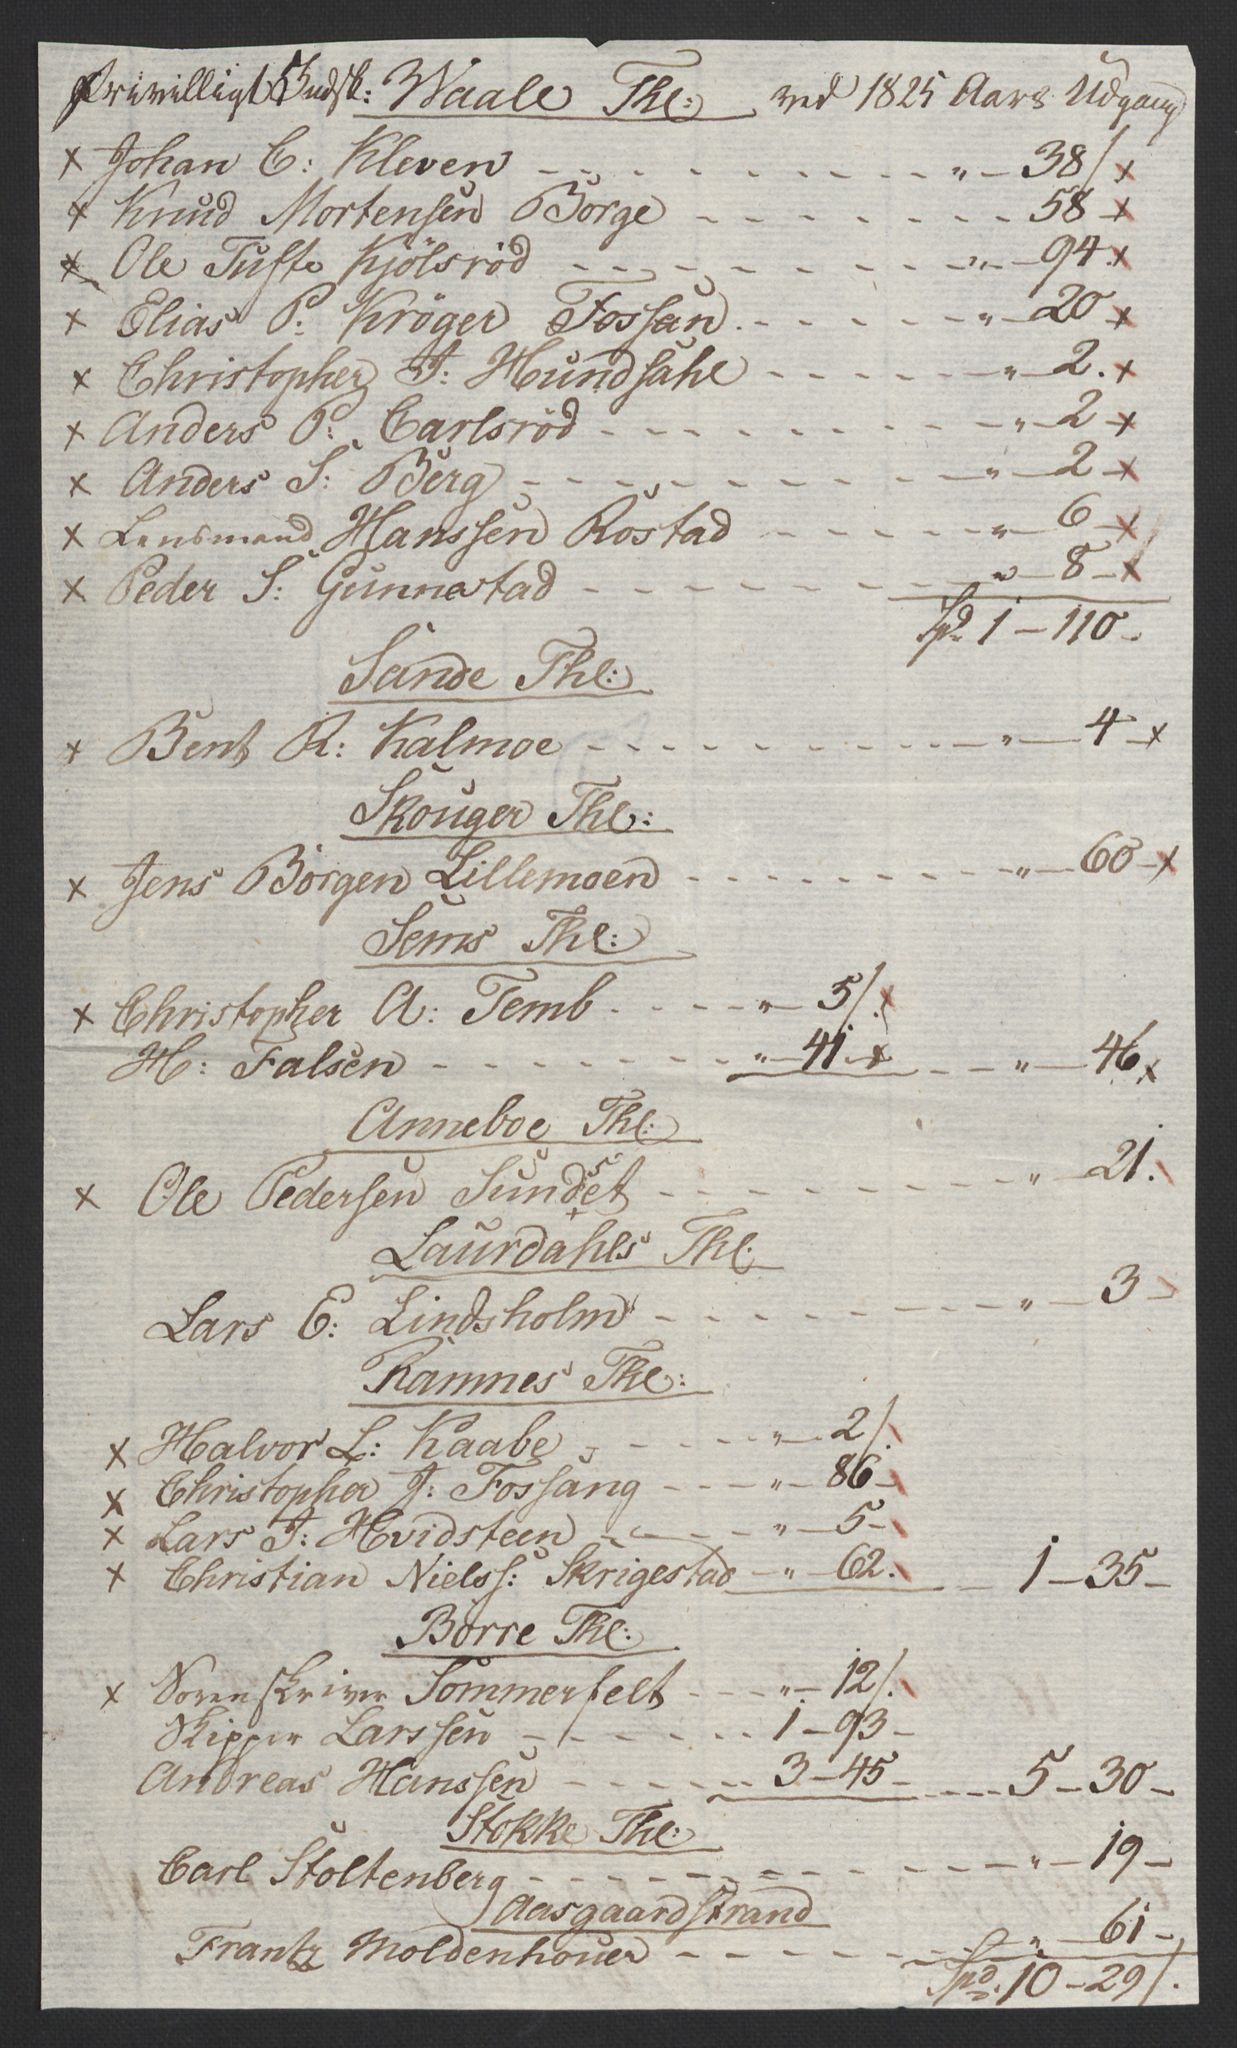 Frivilligt Indsk: Waale Thl: ved 1825 Aars Udgang
x Johan C: Kleven - - - " - 38/ x
x Knud Mortensen Borge - - - 58 - x
x Ole Tufte Kjölsröd - - - " - 94. x
x Elias P. Kröger Fossan - - - " - 20 x
x Christopher J: Hundsahl - - - " - 2. x
x Anders P. Carlsröd - - - " - 2 x
x Anders S: Berg - - - " - 2 - x
x Lensmand Hanssen Rostad - - - " - 6 - x
x Peder S: Gunnestad - - - " - 8 - x
Spd 1 - 110 -
Sande Thl:
x Bent R: Kalmoe - - - " - 4 - x
Skouger Thl:
x Jens Borgen Lillemoen - - - " - 60 - x
Sems Thl:
x Christopher A: Temb - - - " - 5/. x
H: Falsen - - - " - 41. x - - " - 46 x
Anneboe Thl:
x Ole Pedersen Sundset - - - " - 21.
Laurdahls Thl:
Lars E: Lindsholm - - - " - 3 -
Ramnes Thl:
x Halvor L: Kaabe - - - " - 2/.
x Christopher J: Fossang - - - " - 86 -
x Lars J: Hvidsteen - - - " - 5 -
x Christian Nielss: Skrigestad - " - 62. - 1 - 35 -
Borre Thl:
x Sorenskriver Sommerfelt - - - " - 12/.
Skipper Larssen - - - 1 - 93 -
Andreas Hanssen - - - 3 - 45 - - - 5 - 30 -
Stokke Thl:
Carl Stoltenberg - - - " - 19 -
Aasgaardstrand
Frantz Moldenhouer - - - " - 61 -
Spd. 10 - 29/.